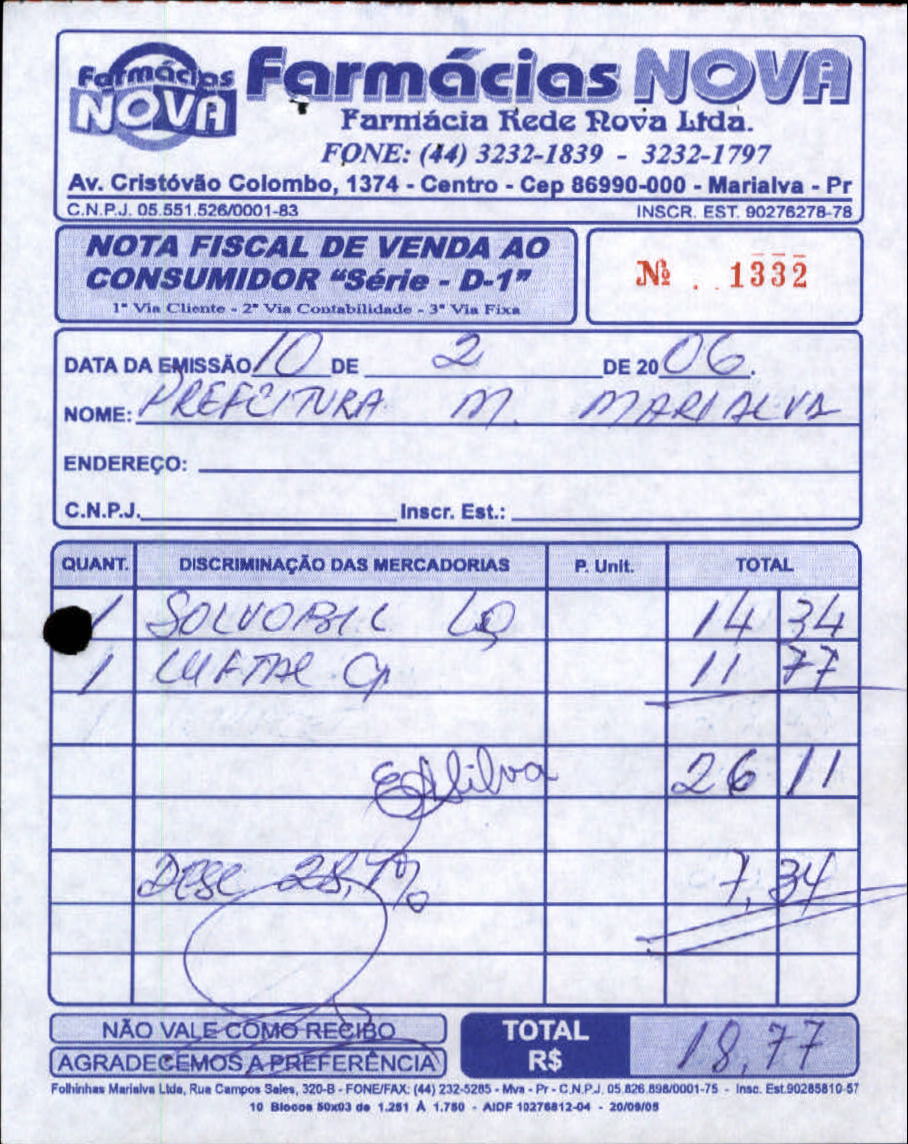 Farmácias
NOVA
Farmácias NOVA
Farmácia Rede Nova Ltda.
FONE: (44) 3232-1839 - 3232-1797
Av. Cristóvão Colombo, 1374 - Centro - Cep 86990-000 - Marialva - Pr
C.N.P.J. 05.551.526/0001-83 INSCR. EST. 90276278-78
NOTA FISCAL DE VENDA AO
CONSUMIDOR “Série - D-1”
1ª Via Cliente - 2ª Via Contabilidade - 3ª Via Fixa
Nº . . 1332
DATA DA EMISSÃO 10 DE 2 DE 20 06.
NOME: PREFEITURA M. MARIALVA
ENDEREÇO:
C.N.P.J. Inscr. Est.:
QUANT. DISCRIMINAÇÃO DAS MERCADORIAS P. Unit. TOTAL
1 SOLVOBIL LQ 14 34
1 LUFTAL Cp 11 77
Silva 26 11
DESC 28,1% 7,34
NÃO VALE COMO RECIBO
AGRADECEMOS A PREFERÊNCIA
TOTAL
R$ 18,77
Folhinhas Marialva Ltda, Rua Campos Sales, 320-B - FONE/FAX: (44) 232-5285 - Mva - Pr - C.N.P.J. 05.826.898/0001-75 - Insc. Est.90285810-57
10 Blocos 50x03 de 1.251 À 1.750 - AIDF 10276812-04 - 20/09/05